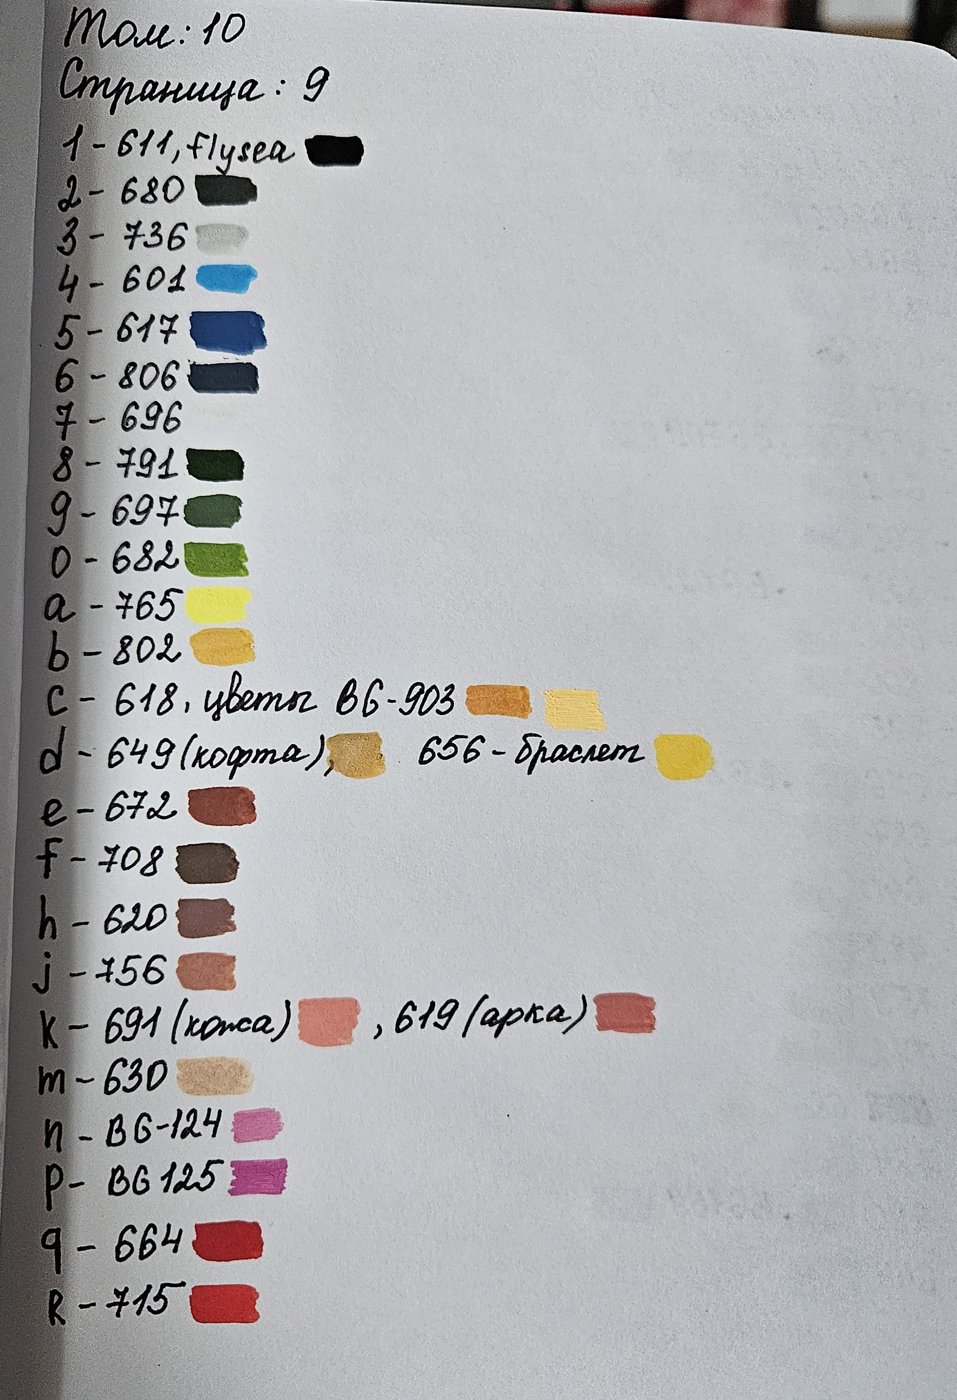 Том: 10
Страница: 9
1 - 611, flysea
2 - 680
3 - 736
4 - 601
5 - 617
6 - 806
7 - 696
8 - 791
9 - 697
0 - 682
a - 765
b - 802
c - 618, цветы BG-903
d - 649 (кофта), 656 - браслет
e - 672
f - 708
h - 620
j - 756
k - 691 (кожа), 619 (арка)
m - 630
n - BG-124
p - BG 125
q - 664
R - 715